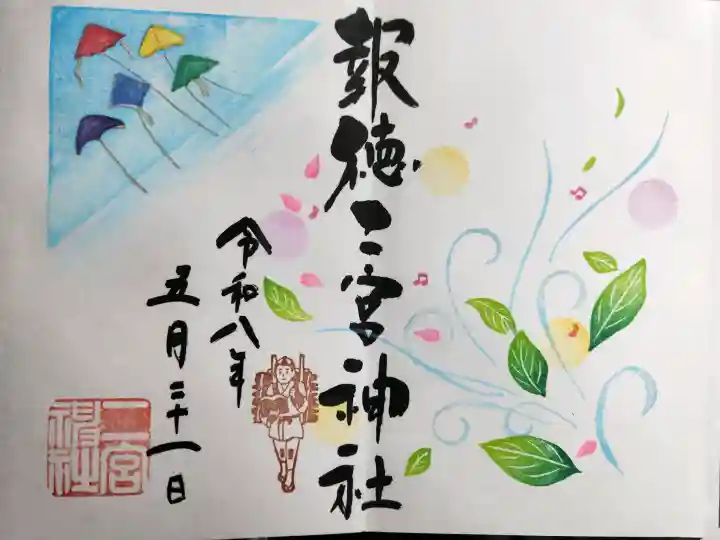 報徳二宮神社
令和八年
五月二十一日
二宮
神社